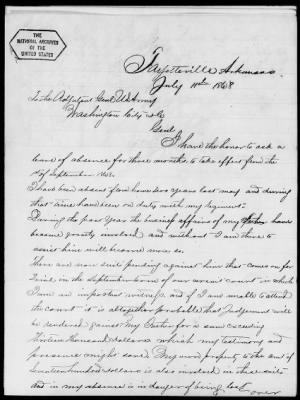 THE
NATIONAL ARCHIVES
OF THE
UNITED STATES
Fayetteville Arkansas
July 10th 1868
To the Adjutant Genl U.S. Army
Washington City D.C.
Genl
I have the honor to ask a
leave of absence for three months to take effect from the
1st of September 1868.
I have been absent from home two years last may and during
that time have been on duty with my regiment.
During the past year the business affairs of my Father have
become greatly involved and without I am there to
assist him will become more so.
There are now suits pending against him that comes on for
trial in the September term of our circuit court in which
I am an important witness, and if I am unable to attend
the court it is altogether probable that Judgement will
be rendered against my Father for a sum exceeding
thirteen thousand dollars which my testimony and
presence might save. My own property to the am't of
seventeen hundred dollars is also involved in these suits
and in my absence is in danger of being lost
over